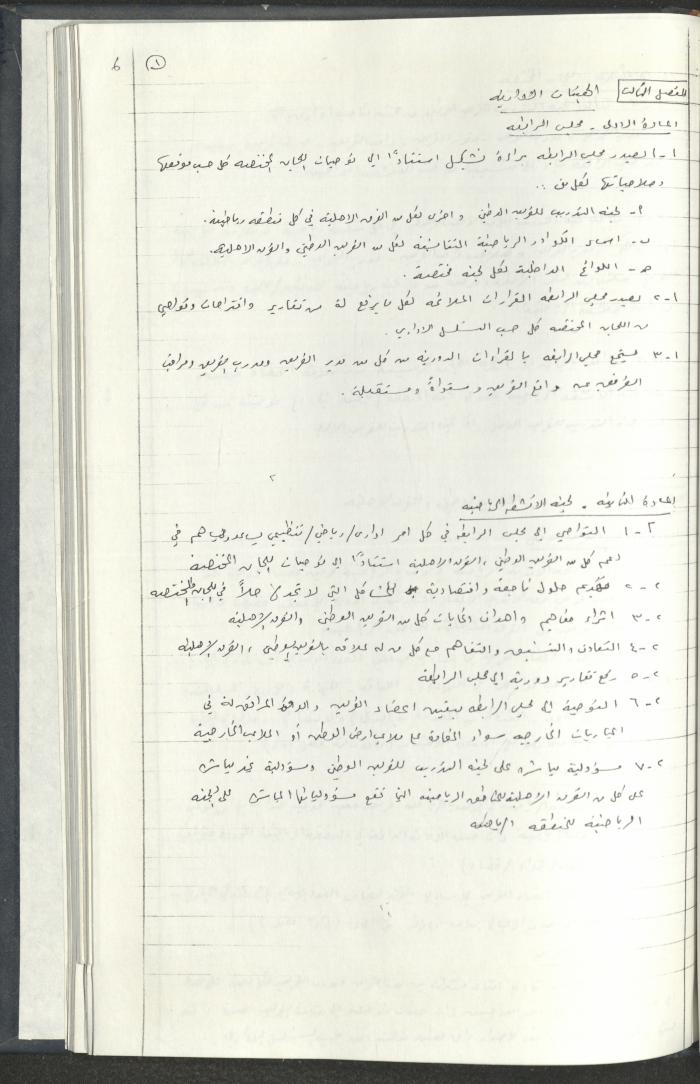 ٦ ①
الفصل الثالث الهيئات الادارية
المادة الاولى - مجلس الرابطه
١-١ يصدر مجلس الرابطه براءة تشكيل استناداً الى توصيات اللجان المختصه كل حسب موقعها
وصلاحياتها لكل من :.
أ- لجنه التدريب للفريق الوطني واخرى لكل من الفرق الاهلية في كل منطقه رياضية.
ب- اسماء الكوادر الرياضية المتفاسغة لكل من الفريق الوطني والفرق الاهليه.
هـ- اللوائح الداخلية لكل لجنة مختصة.
١-٢ يصدر مجلس الرابطه القرارات الملائمه لكل ما يرفع له من تقارير واقتراحات ونواحي
من اللجان المختصه كل حسب التسلسل الاداري.
١-٣ يستمع مجلس الرابطه بالقراءات الدورية من كل من مدير الفريق ومدرب الفريق ومراقب
الفريق عن واقع الفريق ومستواهُ ومستقبله.
٢
المادة الثانيه - لجنة الانشطه الرياضيه
٢-١ التواصي الى مجلس الرابطه في كل امر ادارى/رياضي/تنظيمي يساعد ويساهم في
دعم كل من الفريق الوطني، الفرق الاهلية استناداً الى توصيات اللجان المختصة
٢-٢ تقديم حلول ناجعة واقتصادية للمشاكل التي لا تجد لها حلاً في اللجان المختصه
٢-٣ اثراء مفاهيم واهداف وغايات كل من الفريق الوطني والفرق الاهلية
٢-٤ التعاون والتنسيق والتفاهم مع كل من له علاقه بالفريق الوطني، الفرق الاهليه
٢-٥ رفع تقارير دورية الى مجلس الرابطة
٢-٦ التوصية الى مجلس الرابطه بتعيين اعضاء الفريق والوفد المرافق له في
المباريات الخارجيه سواء المقامة على ملاعب ارض الوطن أو الملاعب الخارجية
٢-٧ مسؤولية مباشره على لجنة التدريب للفريق الوطني ومسؤولية غير مباشره
على كل من الفرق الاهلية للمناطق الرياضيه التي تقع مسؤولياتها المباشره على اللجنه
الرياضية للمنطقه الرياضيه